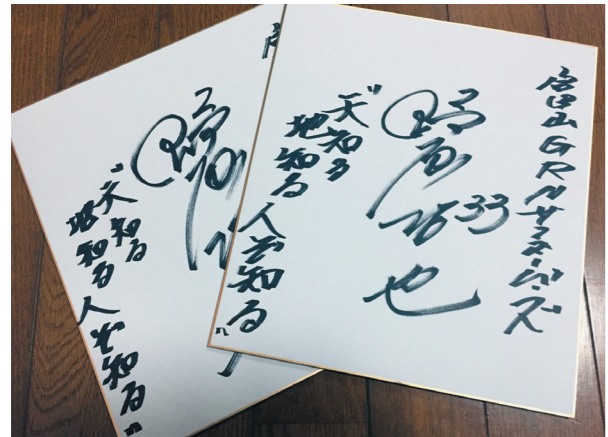 富山GRNサンダーバーズ
33
野原祐也
"天知る
地知る人も知る"
野原
"天知る
地知る人も知る"